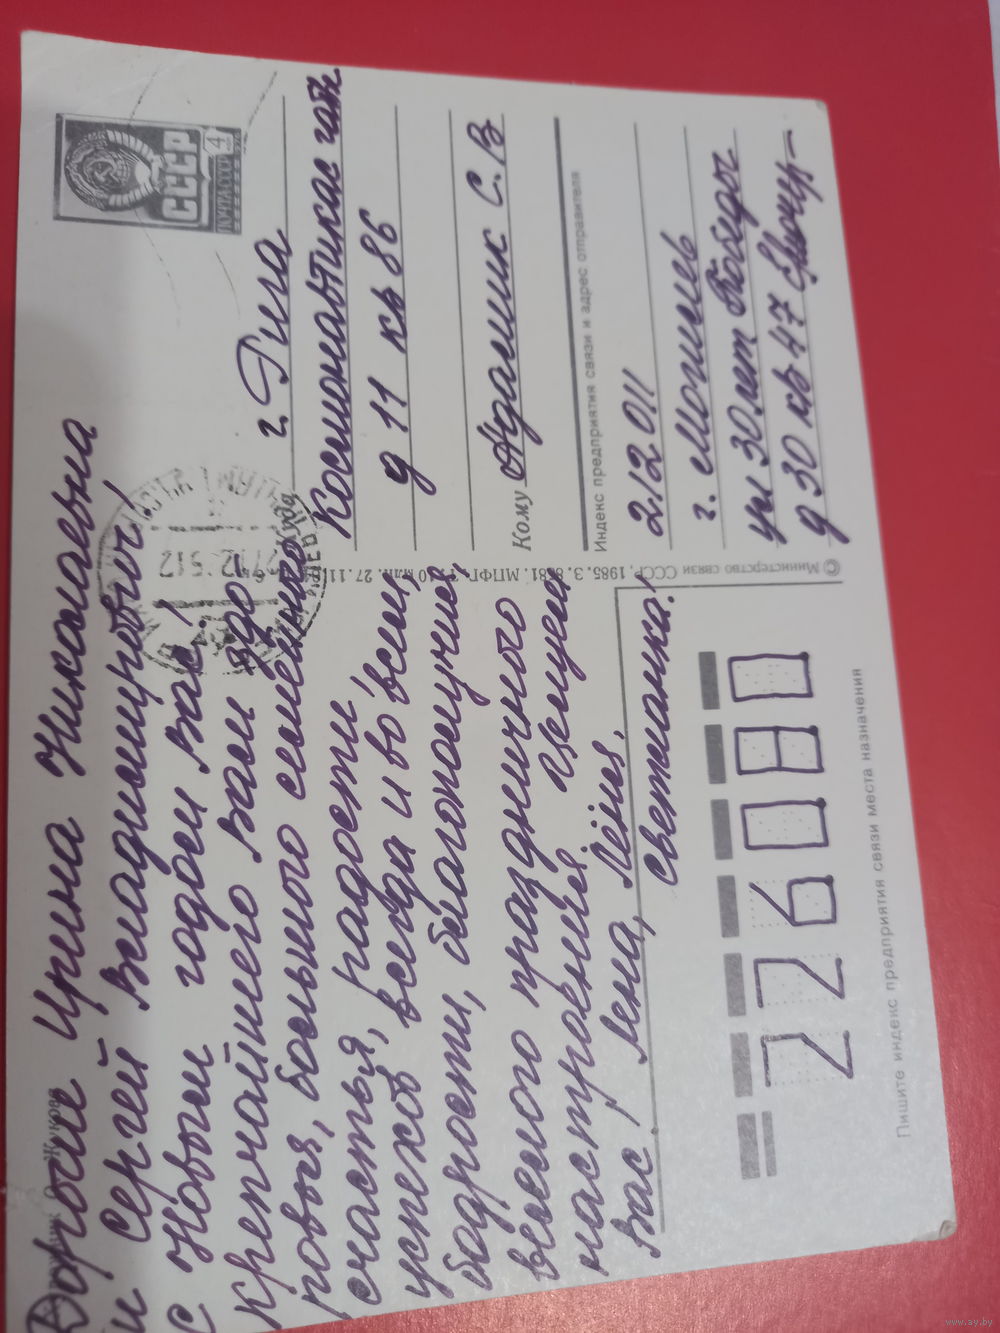 Художник О. Жукова
Дорогие Ирина Николаевна
и Сергей Владимирович!
С Новым годом Вас!
крепчайшего Вам здо-
ровья, большого семейного
счастья, радости
успехов всегда и во всем,
бодрости, благополучия,
веселого праздничного
настроения! Целуем
Вас! Лена, Лёня,
Светланка!
СССР
ПОЧТА СССР
4
Куда
г. Рига
Космонавтикас гат.
д 11 кв 86
Кому Адамик С. В
Индекс предприятия связи и адрес отправителя
212011
г. Могилев
ул 30 лет Победы
д 30 кв 47
© Министерство связи СССР, 1985. З.
226080
Пишите индекс предприятия связи места назначения
www.ay.by